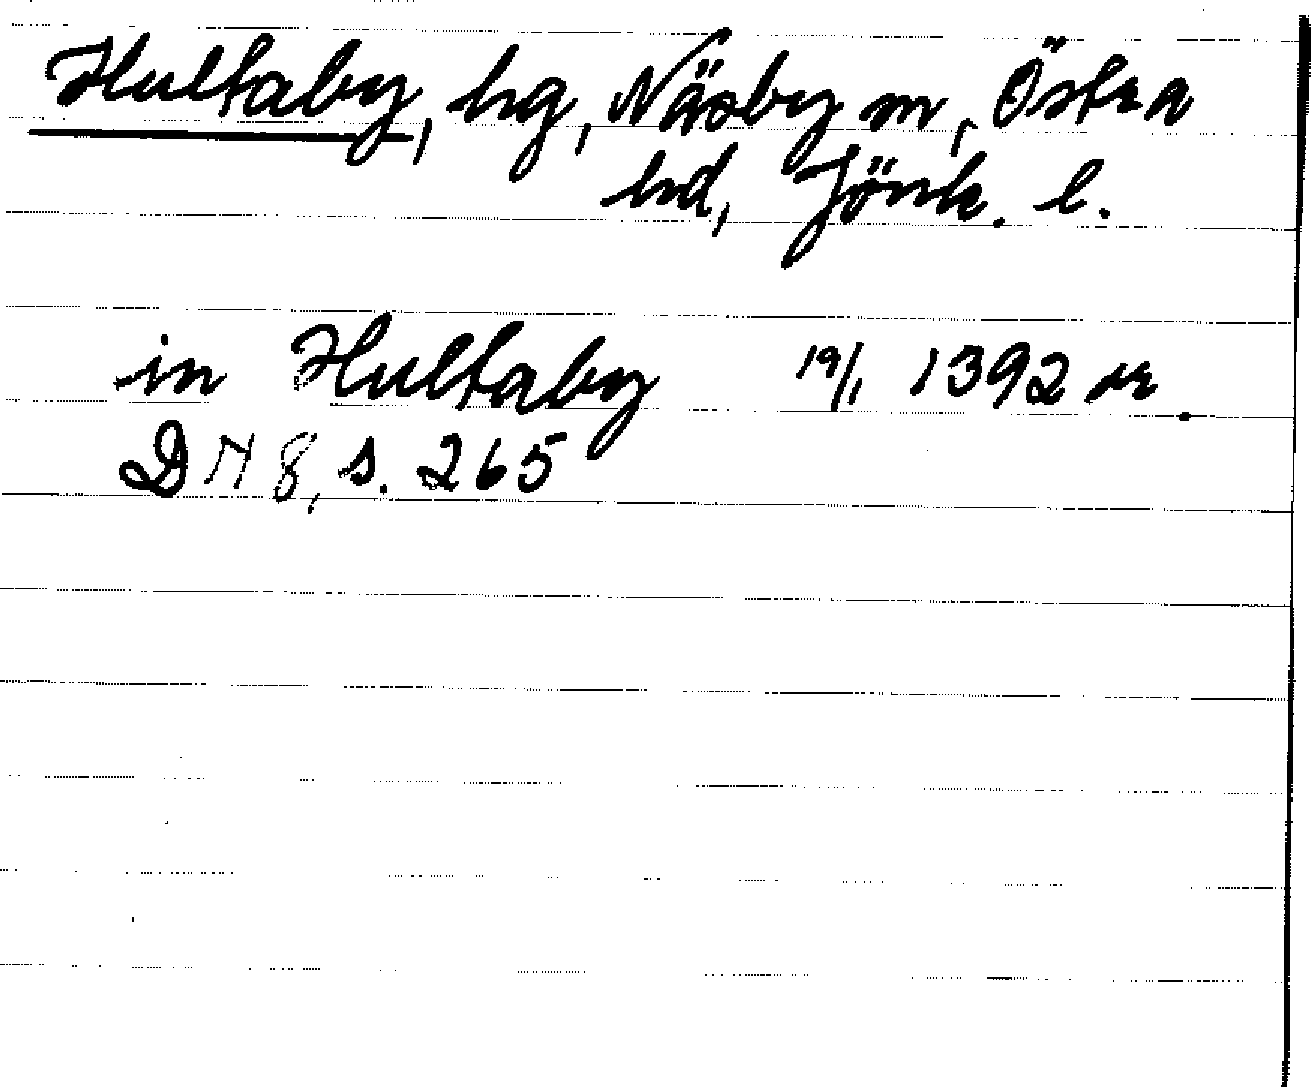 Hultaby, hg, Näsby sn, Östra
hd, Jönk. l.
in Hultaby 19/1 1392 or.
DN 8, s. 265